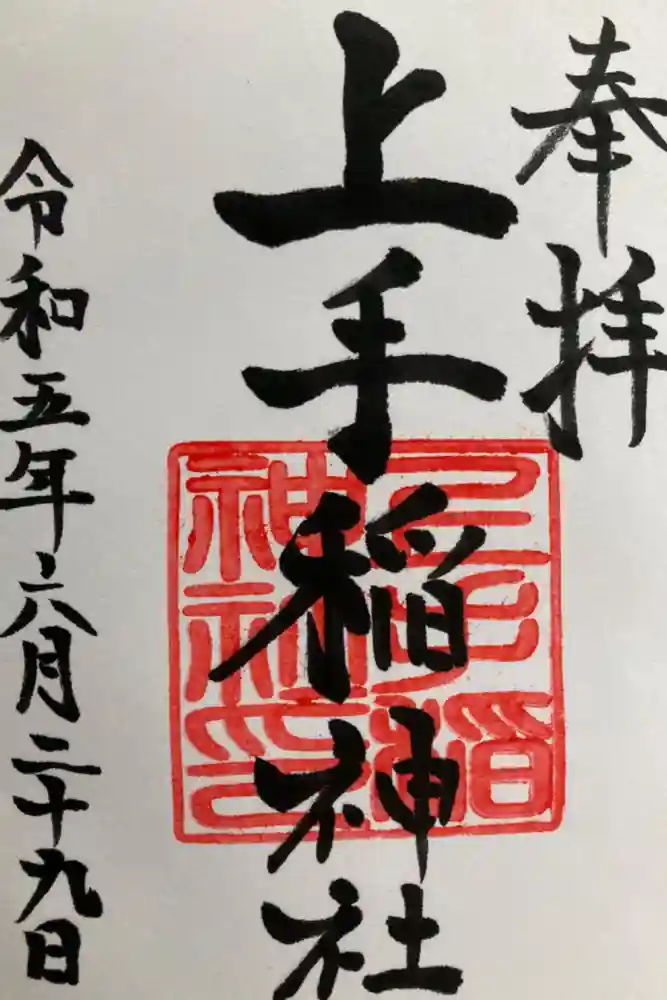 奉拝
上手稲神社
令和五年六月二十九日